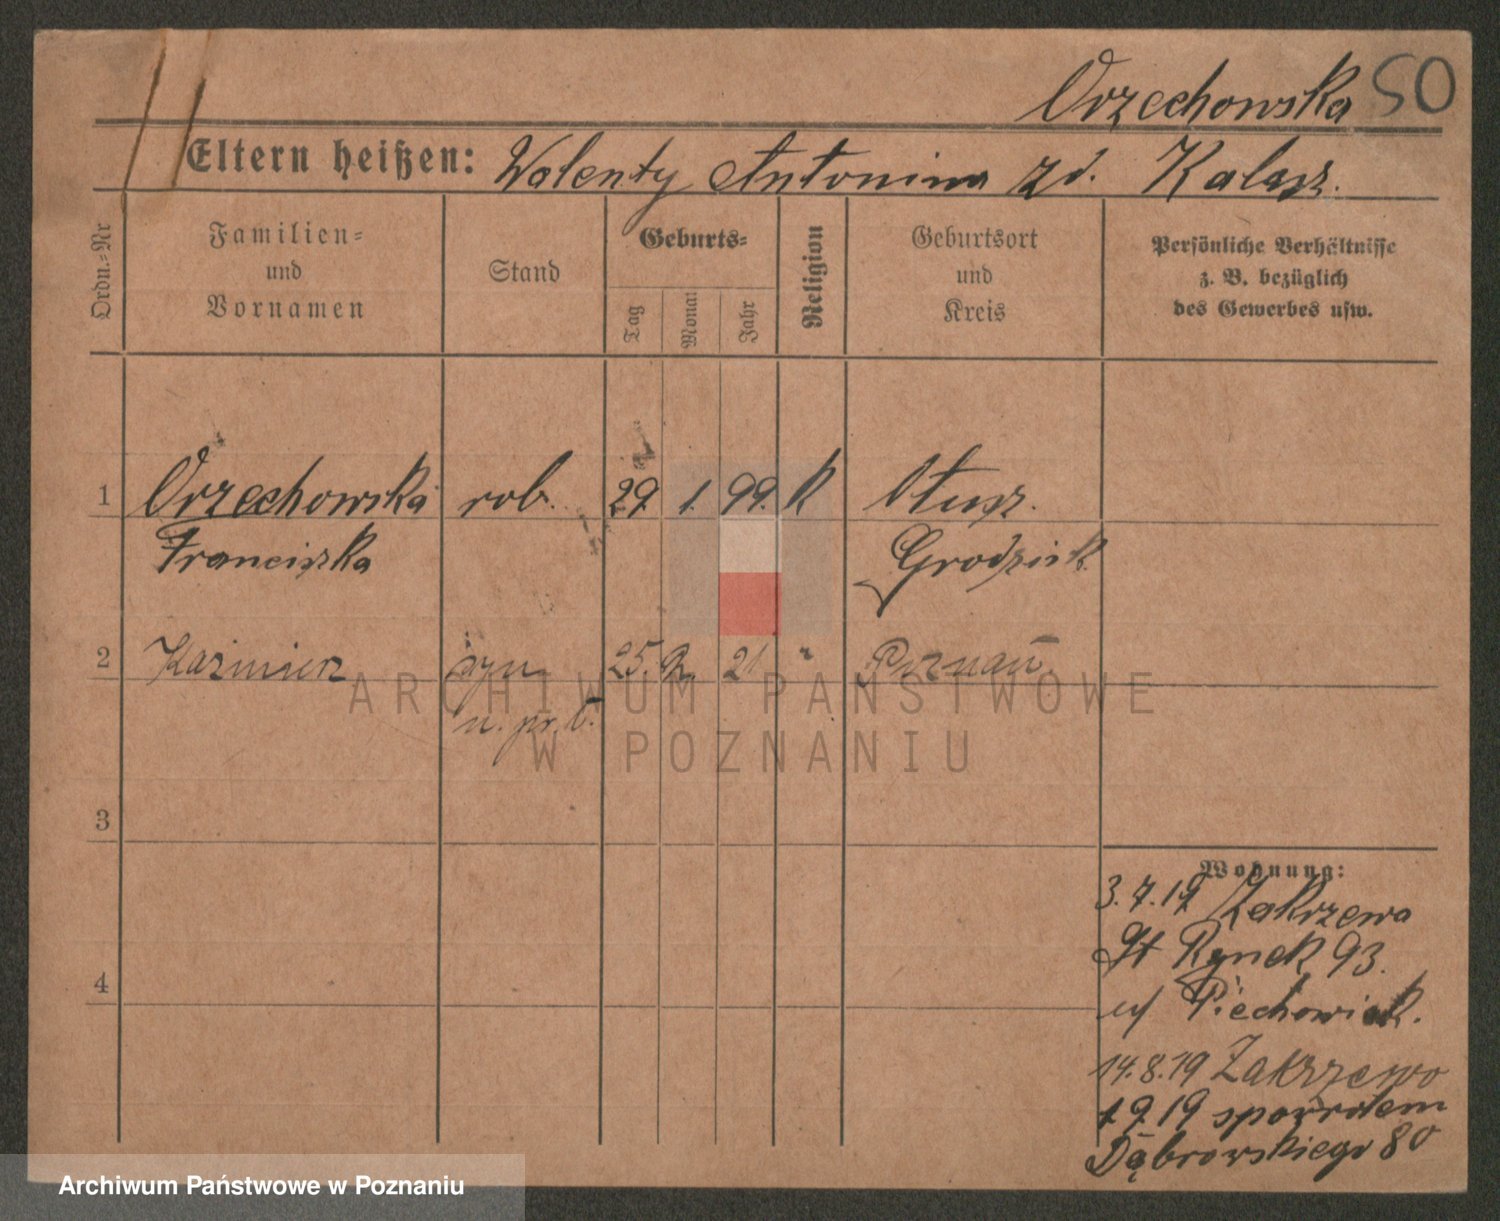 Orzechowska 50
Eltern heißen: Walenty Antonina zd. Kalasz.
Ordn.=Nr
Familien=
und
Vornamen
Stand
Geburts=
Tag
Monat
Jahr
Religion
Geburtsort
und
Kreis
Persönliche Verhältnisse
z. B. bezüglich
des Gewerbes usw.
1 Orzechowska rob. 29. 1. 99. K Otusz.
Franciszka Grodzisk
2 Kazimierz syn 25. 21 " Poznań.
n. pr. b.
3
4
Wohnung:
3.7.19 Zakrzewo
St Rynek 93.
u/ Piechowiak.
14.8.19 Zakrzewo
1 9 19 spowrotem
Dąbrowskiego 80
ARCHIWUM PAŃSTWOWE
W POZNANIU
Archiwum Państwowe w Poznaniu